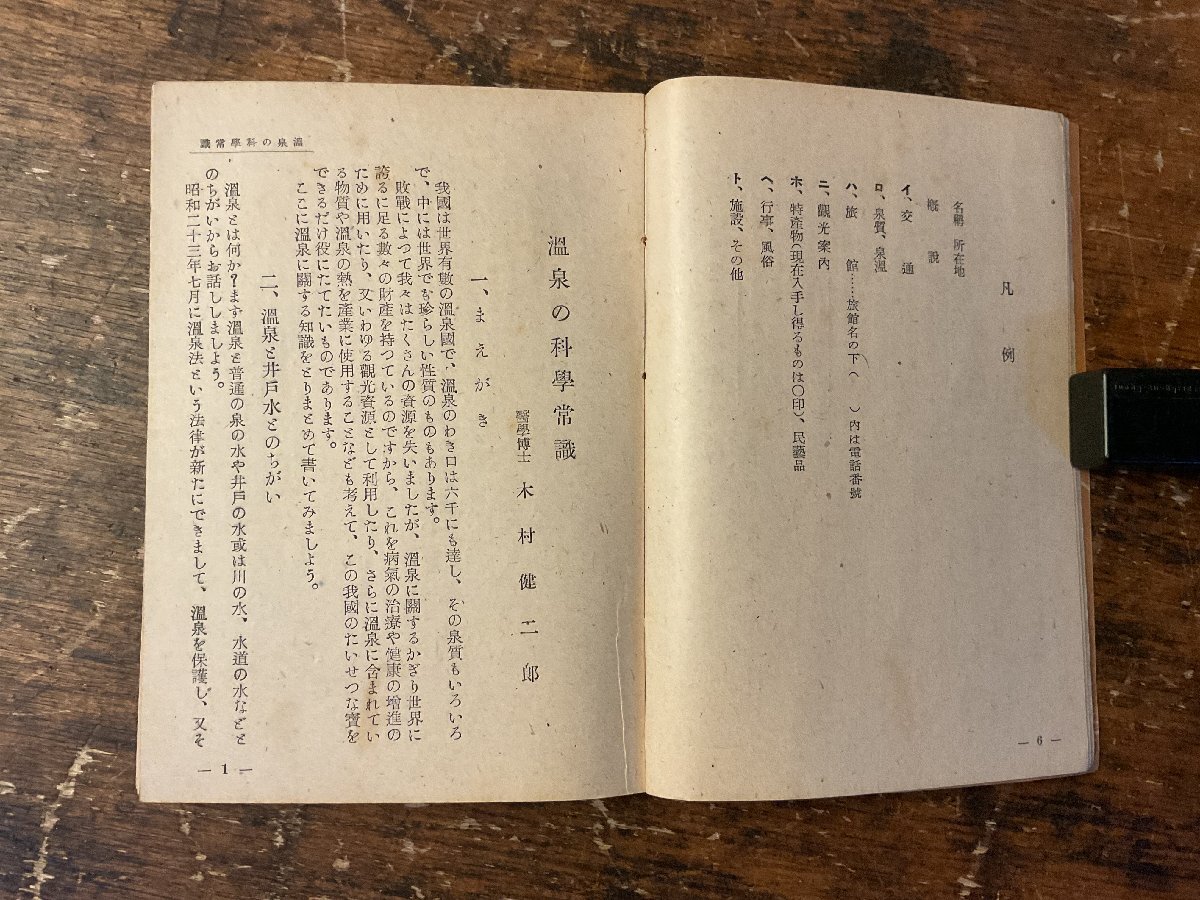 凡例
名稱 所在地
概說
イ、交通
ロ、泉質、泉溫
ハ、旅館……旅館名の下( )內は電話番號
ニ、觀光案內
ホ、特產物(現在入手し得るものは〇印)、民藝品
ヘ、行事、風俗
ト、施設、その他
— 6 —
溫泉の科學常識
醫學博士 木村健二郎
一、まえがき
我國は世界有數の溫泉國で、溫泉のわき口は六千にも達し、その泉質もいろいろ
で、中には世界でも珍らしい性質のものもあります。
敗戰によつて我々はたくさんの資源を失いましたが、溫泉に關するかぎり世界に
誇るに足る數々の財產を持つているのですから、これを病氣の治療や健康の增進の
ために用いたり、又いわゆる觀光資源として利用したり、さらに溫泉に含まれてい
る物質や溫泉の熱を產業に使用することなども考えて、この我國のたいせつな寶を
できるだけ役にたてたいものであります。
ここに溫泉に關する知識をとりまとめて書いてみましよう。
二、溫泉と井戶水とのちがい
溫泉とは何か?まず溫泉と普通の泉の水や井戶の水或は川の水、水道の水などと
のちがいからお話ししましよう。
昭和二十三年七月に溫泉法という法律が新たにできまして、溫泉を保護し、又そ
溫泉の科學常識
— 1 —